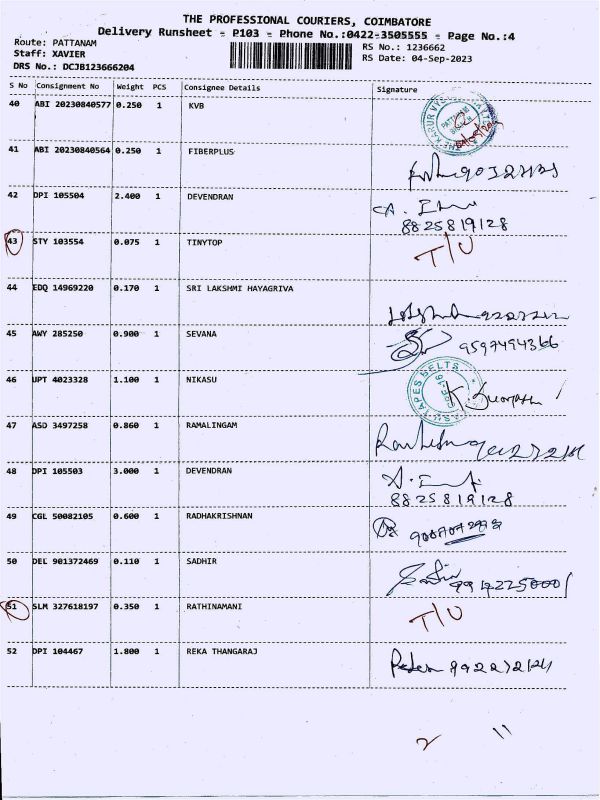 THE PROFESSIONAL COURIERS, COIMBATORE
Delivery Runsheet - P103 - Phone No.:0422-3505555 - Page No.:4
Route: PATTANAM
Staff: XAVIER
DRS No.: DCJB123666204
RS No.: 1236662
RS Date: 04-Sep-2023
S No Consignment No Weight PCS Consignee Details Signature
40 ABI 20230840577 0.250 1 KVB
41 ABI 20230840564 0.250 1 FIBERPLUS
42 DPI 105504 2.400 1 DEVENDRAN
8825819128
43 STY 103554 0.075 1 TINYTOP T/U
44 EDQ 14969220 0.170 1 SRI LAKSHMI HAYAGRIVA
45 AWY 285250 0.900 1 SEVANA 9597494366
46 UPT 4023328 1.100 1 NIKASU
TAPES BELTS
47 ASD 3497258 0.860 1 RAMALINGAM
48 DPI 105503 3.000 1 DEVENDRAN
8825819128
49 CGL 50082105 0.600 1 RADHAKRISHNAN
50 DEL 901372469 0.110 1 SADHIR
51 SLM 327618197 0.350 1 RATHINAMANI T/U
52 DPI 104467 1.800 1 REKA THANGARAJ
2 11